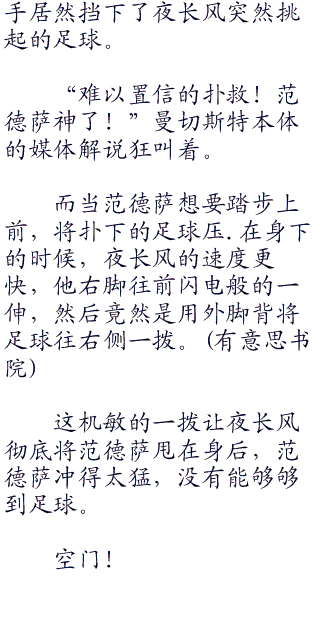 手居然挡下了夜长风突然挑
起的足球。
“难以置信的扑救！范
德萨神了！”曼切斯特本体
的媒体解说狂叫着。
而当范德萨想要踏步上
前，将扑下的足球压.在身下
的时候，夜长风的速度更
快，他右脚往前闪电般的一
伸，然后竟然是用外脚背将
足球往右侧一拨。(有意思书
院)
这机敏的一拨让夜长风
彻底将范德萨甩在身后，范
德萨冲得太猛，没有能够够
到足球。
空门！